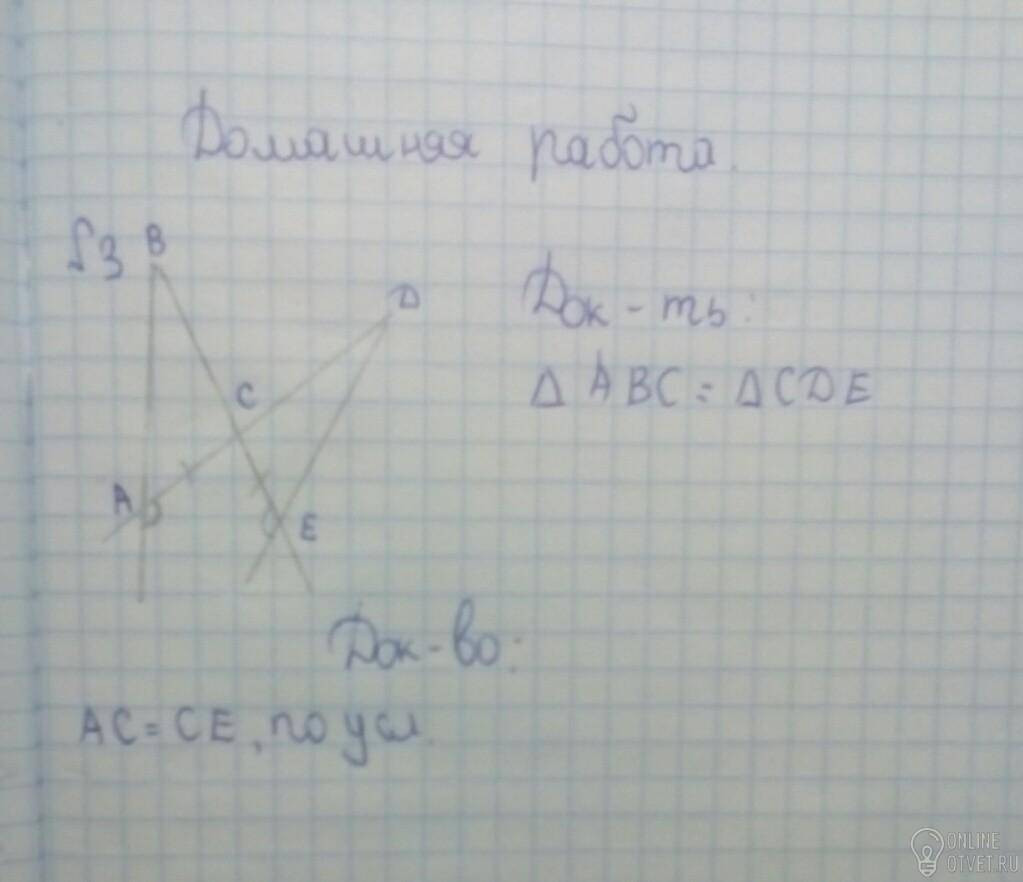 Домашняя работа.
№3
B
D
C
A
E
Док-ть:
Δ ABC = Δ CDE
Док-во:
AC = CE, по усл.
ONLINE
OTVET.RU